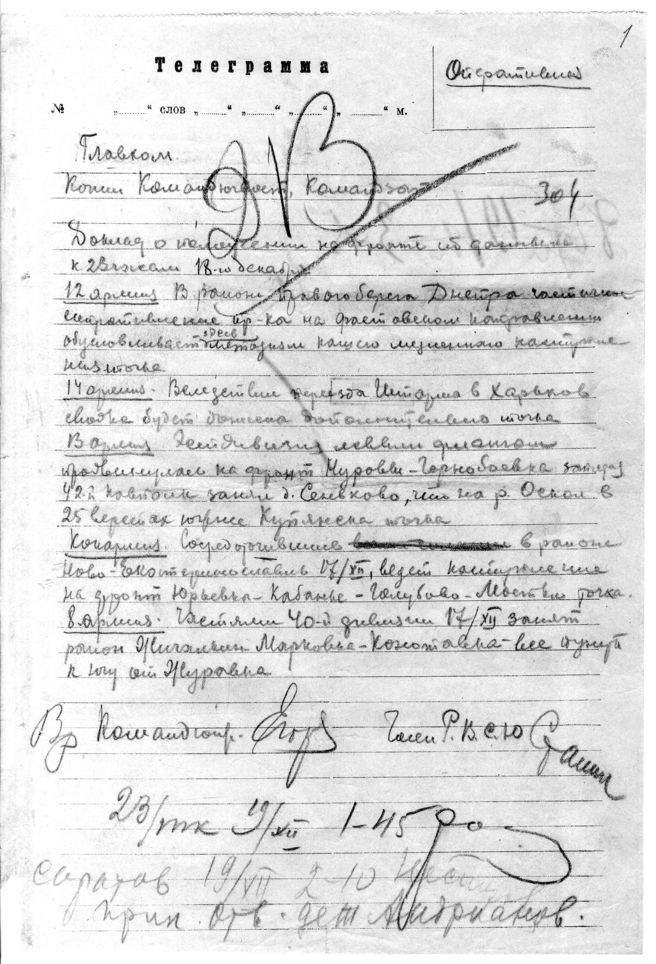 1
Телеграмма
Оперативная
№ „......“ слов „......“ „......“ „......“, „......“ м.
Главком.
Копии
304
Доклад о положении на фронте по данным
к 23 часам 18-го декабря.
12 армия В районе правого берега Днепра частичное
сопротивление пр-ка на фастовском направлении
обусловливает здесь нашего медленного наступле
ния точка
14 армия. Вследствии переезда Штарма в Харьков
сводка будет дополнительно точка
армия левым флангом
продвинулась на фронт запятая
42-й занял д. Сеньково, что на р. Оскол в
25 верстах южнее Купянска точка
Конармия. Сосредоточившись в районе
Ново-Екатеринославль 17/XII, ведет наступление
на фронт Юрьевка-Кабанье-Голубово-Мостки точка.
8 армия. Частями 40-й дивизии 17/XII занят
район Марковка все пункты
к югу от Журавка
Вр Командюж. Егоров Член Р.В.С.Ю Сталин
23/ 19/XII 1-45
Саратов 19/XII 2-10
прин. отв. деж Андрианов.